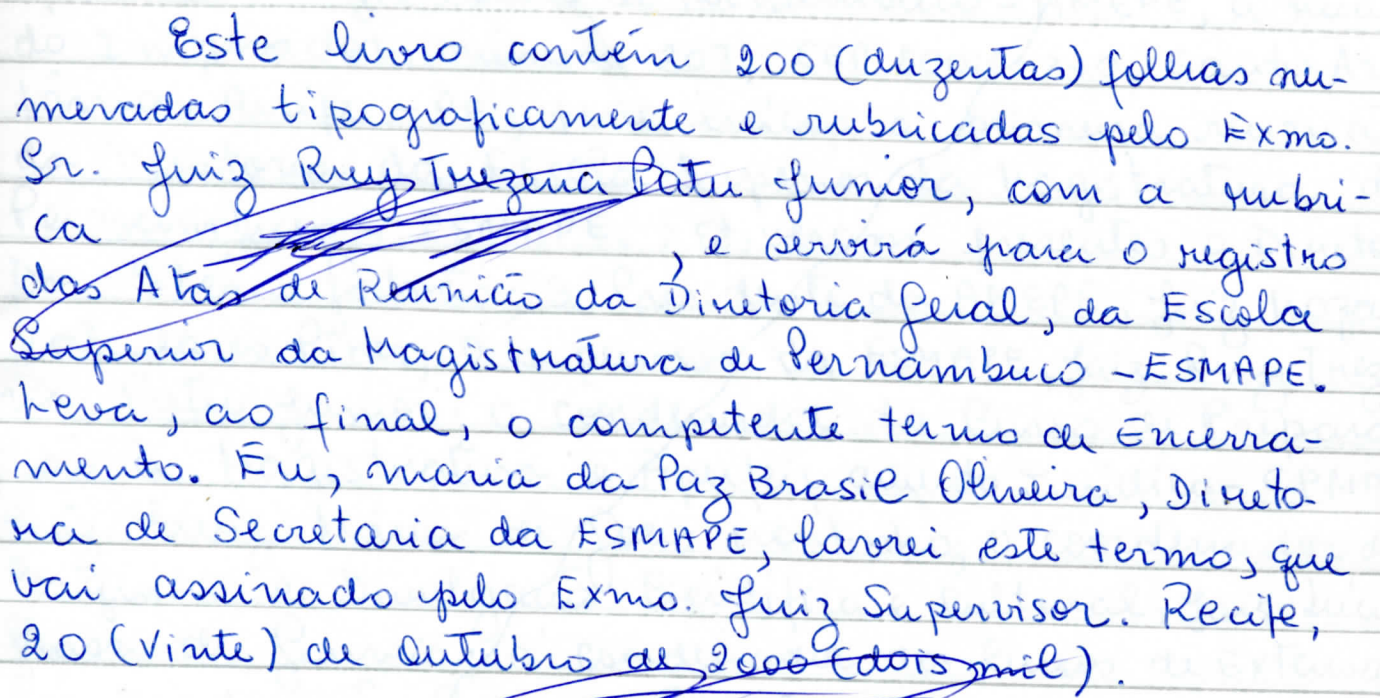 Este livro contém 200 (duzentas) folhas nu-
meradas tipograficamente e rubricadas pelo Exmo.
Sr. Juiz Ruy Trezena Patu Junior, com a rubri-
ca , e servirá para o registro
das Atas de Reunião da Diretoria Geral, da Escola
Superior da Magistratura de Pernambuco - ESMAPE.
Leva, ao final, o competente termo de Encerra-
mento. Eu, Maria da Paz Brasil Oliveira, Direto-
ra de Secretaria da ESMAPE, lavrei este termo, que
vai assinado pelo Exmo. Juiz Supervisor. Recife,
20 (vinte) de Outubro de 2000 (dois mil).